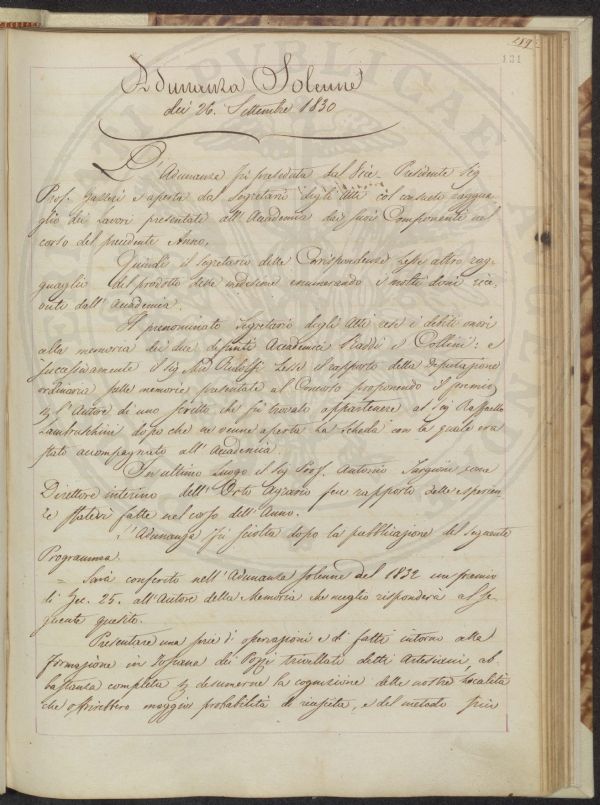 189
131
Adunanza Solenne
dei 26. Settembre 1830
L'Adunanza fu preseduta dal Vice-Presidente Sig
Prof. Gazzeri e aperta dal Segretario degli Atti col consueto ragguaglio
dei Lavori presentati all'Accademia dai suoi Componenti nel
corso del precedente Anno.
Quindi il Segretario delle Corrispondenze lesse altro ragguaglio
del prodotto delle medesime enumerando i molti doni ricevuti
dall'Accademia.
Il prenominato Segretario degli Atti rese i debiti onori
alla memoria dei due defunti Accademici Raddi e Collini: e
successivamente il Sig Ridolfi lesse il rapporto della Deputazione
ordinaria sulle memorie presentate al Concorso proponendo il premio
l'Autore di uno scritto che fu trovato appartenere al Sig Raffaello
Lambruschini dopo che ne venne aperta la Scheda con la quale era
stato accompagnato all'Accademia
In ultimo luogo il Sig Prof. Antonio Targioni come
Direttore interino dell'Orto Agrario fece rapporto delle esperienze
statevi fatte nel corso dell'Anno.
L'Adunanza fu sciolta dopo la pubblicazione del seguente
Programma.
= Sarà conferito nell'Adunanza Solenne del 1832 un premio
di Zec. 25. all'Autore della Memoria che meglio risponderà al seguente
quesito.
Presentare una serie di operazioni e di fatti intorno alla
formazione in Toscana dei Pozzi trivellati detti Artesiani, abbastanza
completa desumerne la cognizione delle nostre Località
che offrirebbero maggiori probabilità di riuscita, e del metodo più